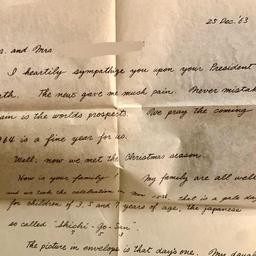 23 Dec. '63
. and Mrs
I heartily sympathize you upon your President
th. The news gave me much pain. Never mistak
ain is the worlds prospects. We pray the coming
964 is a fine year for us.
Well, now we met the Christmas season.
How is your family My family are all well
and we took the celebration in that is a gala day
for children of 3, 5 and 7 years of age, the japanese
so called "Shichi-go-san".
7 5 3
The picture in envelope is that day's one. My daugh